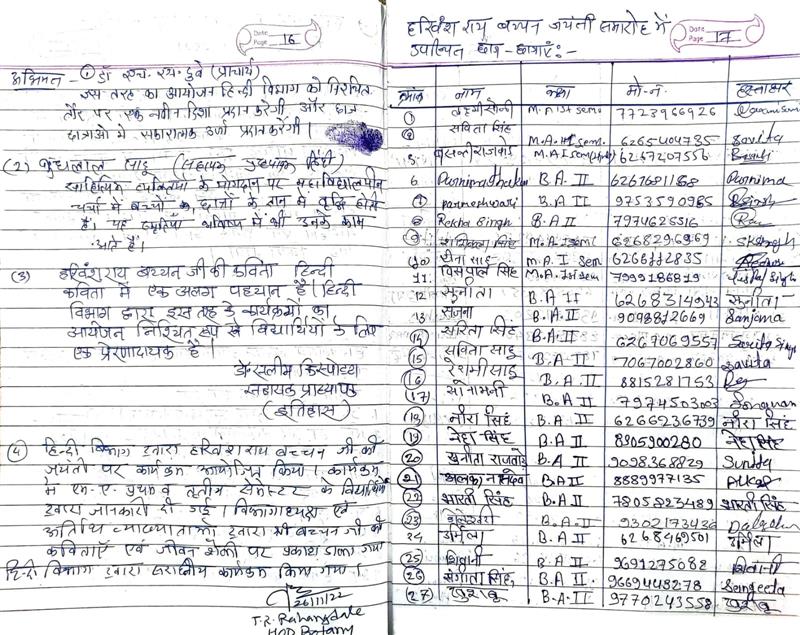 Date
Page 16
अभिमत - ① डॉ एच. एच. दुबे (प्राचार्य)
जस तरह का आयोजन हिन्दी विभाग को निश्चित
तौर पर एक नवीन दिशा प्रदान करेगी और छात्र
छात्राओं में सकारात्मक उर्जा प्रदान करेगी।
(2) बुधलाल साहू (सहायक प्राध्यापक हिंदी)
साहित्यिक व्यक्तियों के योगदान पर महाविद्यालयीन
चर्चा में बच्चों के छात्रों के ज्ञान में वृद्धि होती
है। यह स्मृतियाँ भविष्य में भी उनके काम
आते हैं।
(3) हरिवंशराय बच्चन जी की कविता हिन्दी
कविता में एक अलग पहचान है। हिन्दी
विभाग द्वारा इस तरह के कार्यक्रमों का
आयोजन निश्चित रूप से विद्यार्थियों के लिए
एक प्रेरणादायक है।
डॉ सलीम
सहायक प्राध्यापक
(इतिहास)
④ हिन्दी विभाग द्वारा हरिवंशराय बच्चन जी की
जयंती पर कार्यक्रम आयोजित किया। कार्यक्रम
में एम.ए. प्रथम व तृतीय सेमेस्टर के विद्यार्थियों
द्वारा जानकारी दी गई। विभागाध्यक्ष एवं
अतिथि व्याख्याताओं द्वारा श्री बच्चन जी की
कविताएँ एवं जीवन शैली पर प्रकाश डाला गया
हिन्दी विभाग द्वारा सराहनीय कार्यक्रम किया गया।
26/11/22
T.R. Rahangdale
HOD Botany
हरिवंश राय बच्चन जयंती समारोह में
Date
Page 17
उपस्थित छात्र-छात्राएं:-
क्रमांक नाम कक्षा मो.नं. हस्ताक्षर
① M.A Ist sem 7723966926
② सविता सिंह M.A. sem. 6265404735 Savita
5 M.A I sem 6267207556
6 Purnima B.A II 6267681168 Purnima
⑦ parmeshwari B.A II 9753590965
⑧ Rekha Singh B.A II 7974625516
⑨ सिंह M.A I sem 6268296969 SKSingh
⑩ साहू M.A. I Sem 6266112835
11. विसपाल सिंह M.A. Ist sem 7999186819
12 सुनीता B.A II 6268314943 सुनीता
13 संजना B.A II 9098812669 Sanjana
⑭ सरिता सिंह 6267069557 Sarita Singh
⑮ सविता साहू B.A II 7067002860 Savita
⑯ रेशमी साहू B.A II 8815281753
(17) सोनामनी B.A II 7974503003
⑱ नीरा सिंह B.A II 6266236739 नीरा सिंह
⑲ नेहा सिंह B.A II 8905900280 नेहा सिंह
⑳ सुनीता राजवाड़े B.A-II 9098368829 Sunita
㉑ BA II 8889977135
㉒ आरती सिंह B.A II 7805823489 आरती सिंह
㉓ B.A.-II 9302173436
24 उर्मिला B.A.II 6268469501 उर्मिला
㉕ शिवानी B.A II 9691275088 शिवानी
㉖ संगीता सिंह B.A II 9669448278 Sangeeta
(27) खुशबू B.A-II 9770243558 खुशबू